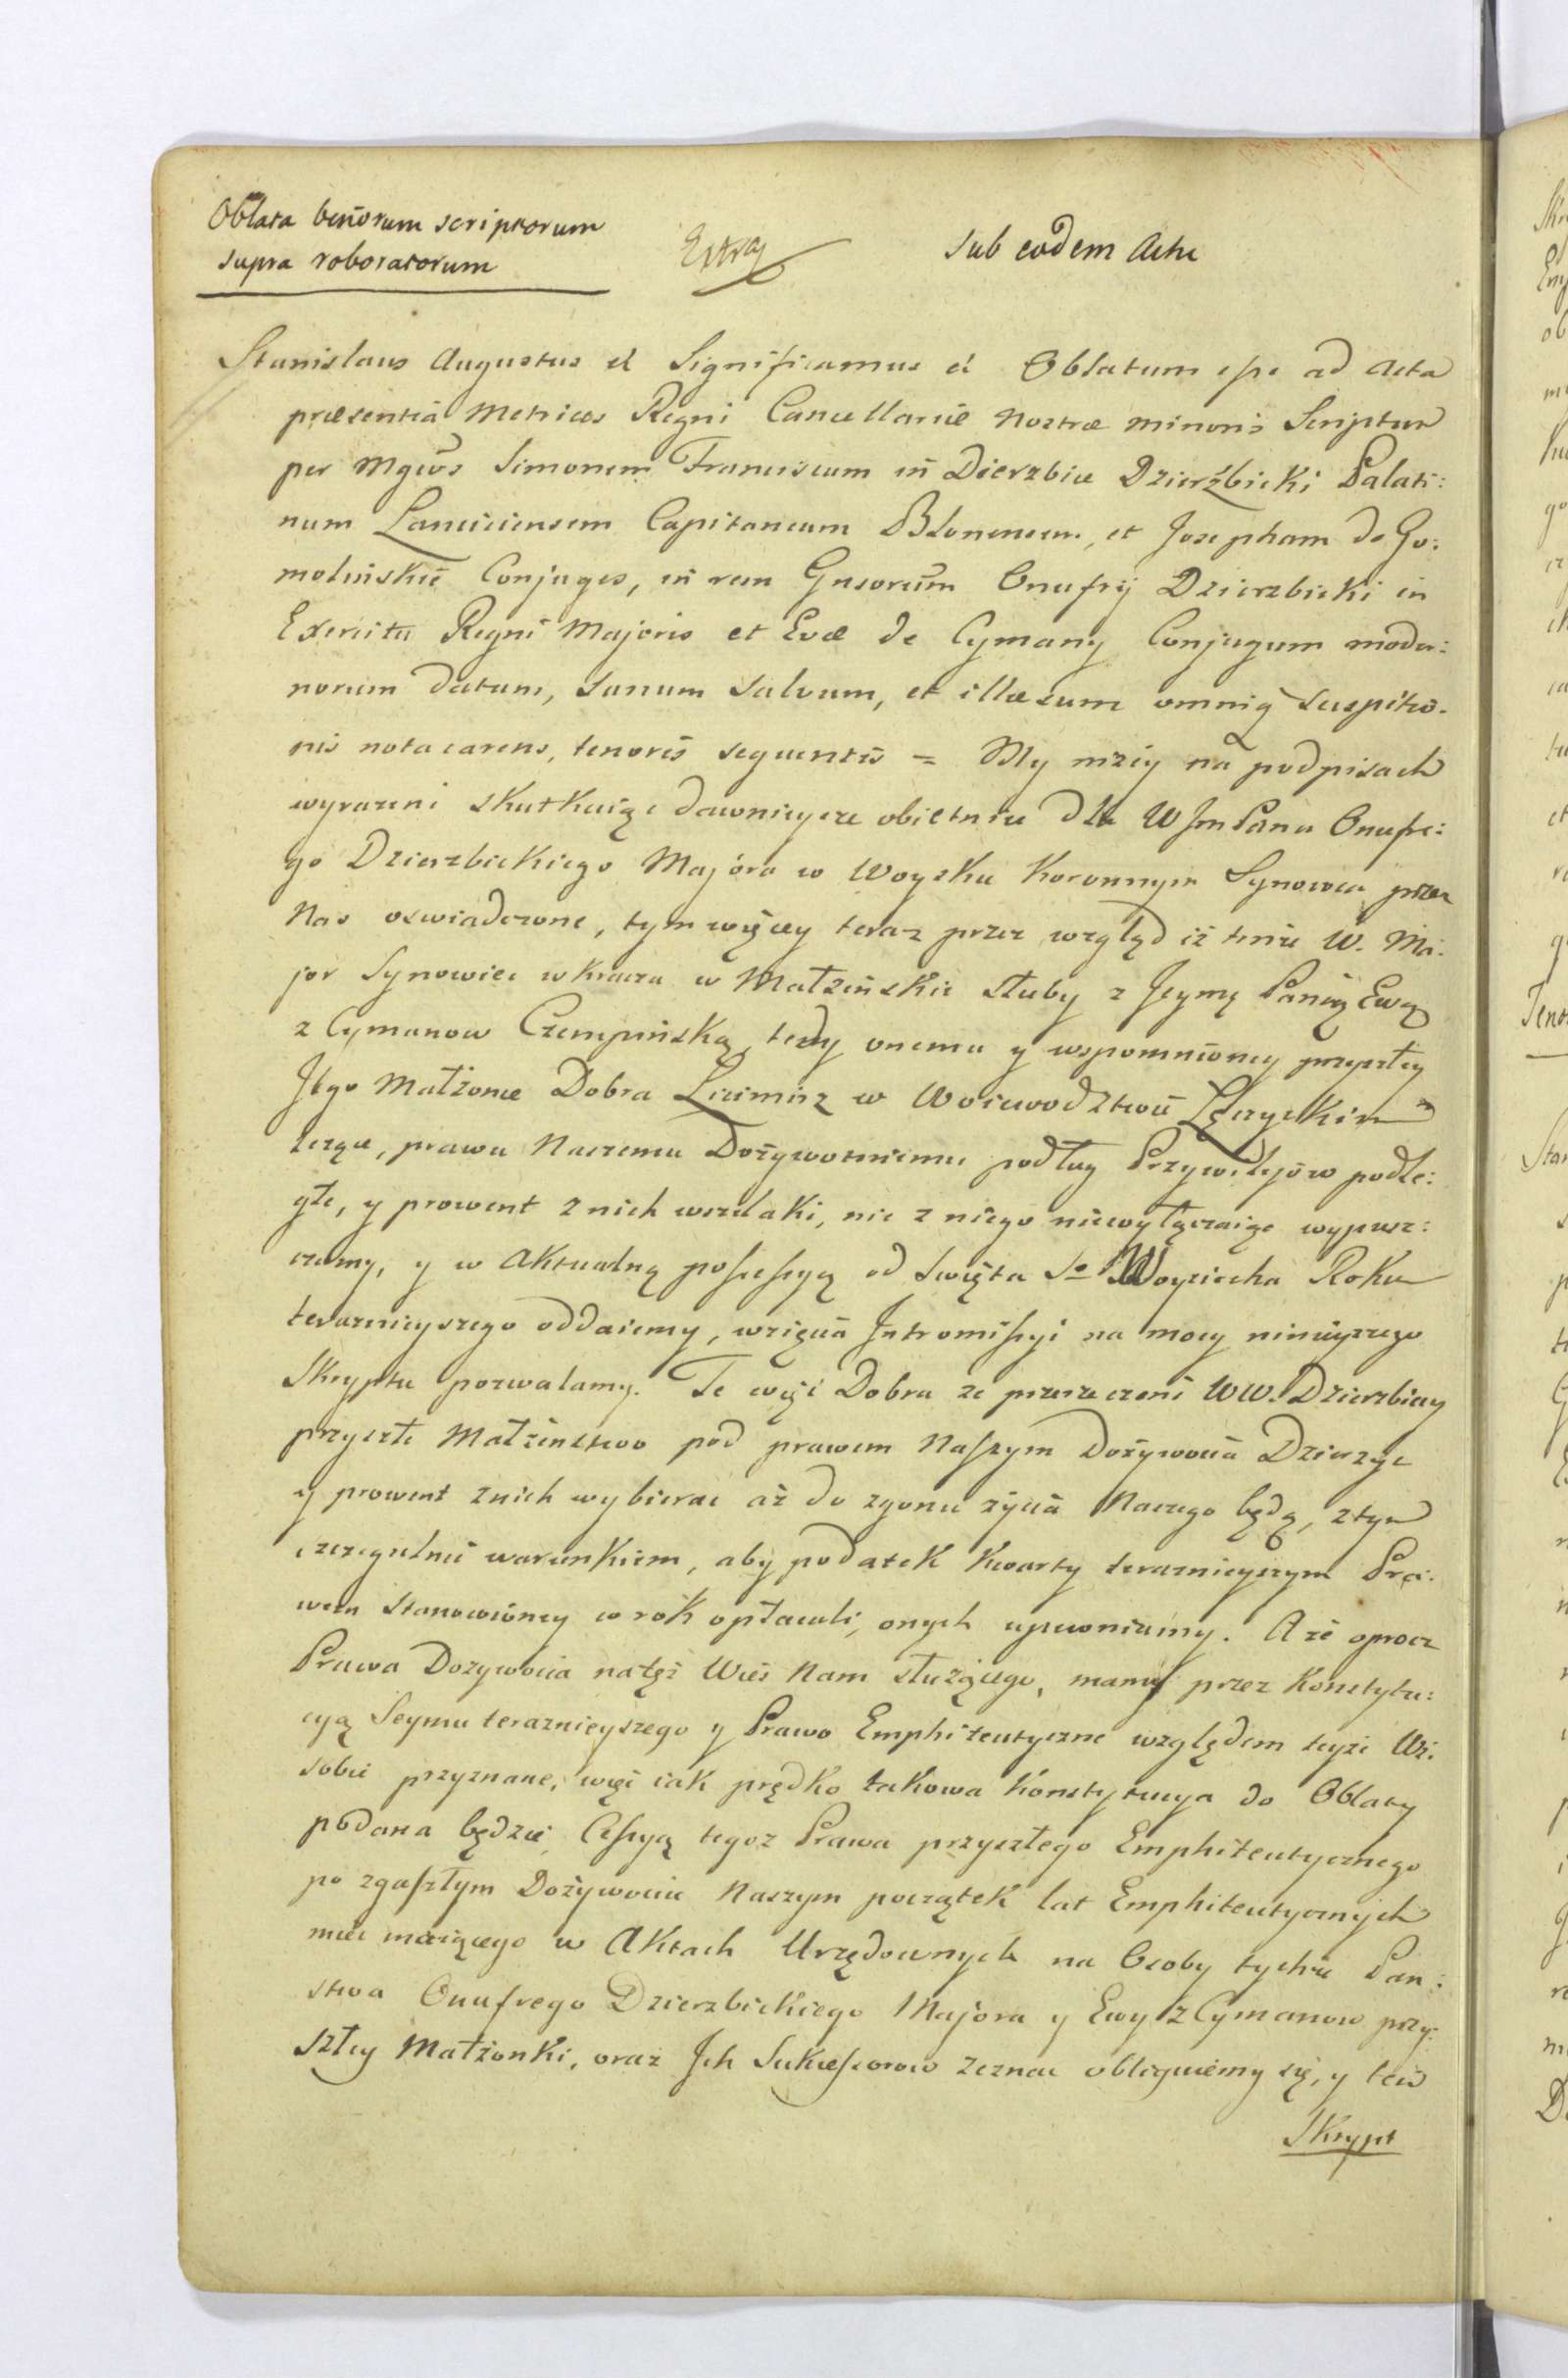 Oblata binorum scriptorum
supra roboratorum
Extra
Sub eodem Actu
Stanislaus Augustus et Significamus et Oblatum esse ad Acta
præsentia Metrices Regni Cancellariæ Nostræ Minoris Scriptum
per Mgcos Simonem Franciscum in Dierzbice Dzierżbicki Palati:
num Lanciciensem Capitaneum Blonensem, et Josepham de Go:
molińskie Conjuges, in rem Gnsorum Onufrij Dzierzbicki in
Exercitu Regni Majoris et Evæ de Cymany Conjugum moder:
norum datum, sanum salvum, et illæsum omniq suspitio-
nis nota carens, tenoris sequentis = My niżey na podpisach
wyrażeni skutkuiąc dawnieysze obietnice dla W JmPana Onufre:
go Dzierzbickiego Majora w Woysku Koronnym Synowca przez
Nas oswiadczone, tym więcey teraz przez wzgląd iż tenże W. Ma:
jor Synowiec wkracza w Małżeńskie sluby z Jeymę Panią Ewą
z Cymanow Czempińską, tedy onemu y wspomnioney przyszłey
Jego Małżonce Dobra Licimisz w Woiewodztwie Łęczyckim
lezące, prawu Naszemu Dożywotniemu podług Przywilejow podle:
głe, y prowent z nich wszelaki, nic z niego niewyłączaiąc wypusz:
czamy, y w Aktualną possessyą od Swięta So Woyciecha Roku
teraznieyszego oddaiemy, wzięcia Intromissyi na mocy ninieyszego
Skryptu pozwalamy. Te więc Dobra że przerzeczeni WW. Dzierzbiccy
przyszłe Małżenstwo pod prawem Naszym Dożywocia Dzierzyc
y prowent znich wybierac aż do zgonu życia Naszego będą, z tym
szczegulnie warunkiem, aby podatek kwarty terazmieyszym Pra:
wem stanowioney co rok opłacali, onych upewniamy. A że oprocz
Prawa Dozywocia natęż Wieś Nam służącego, mamy przez Konstytu:
cyą Seymu terazmieyszego y Prawo Emphiteutyczne względem teyże Wsi
sobie przyznane, więc iak prędko takowa Konstytucya do Oblaty
podana będzie, Cessyą tegoz Prawa przyszłego Emphiteutycznego
po zgasłym Dożywociu Naszym początek lat Emphiteutycznych
miec maiącego w Aktach Urzędowych na Osoby tychże Pan:
stwa Onufrego Dzierzbickiego Majora y Ewy z Cymanow przy:
szłey Małżonki, oraz Ich Sukcessorow zeznac obliguiemy się, y ten
Skrypt